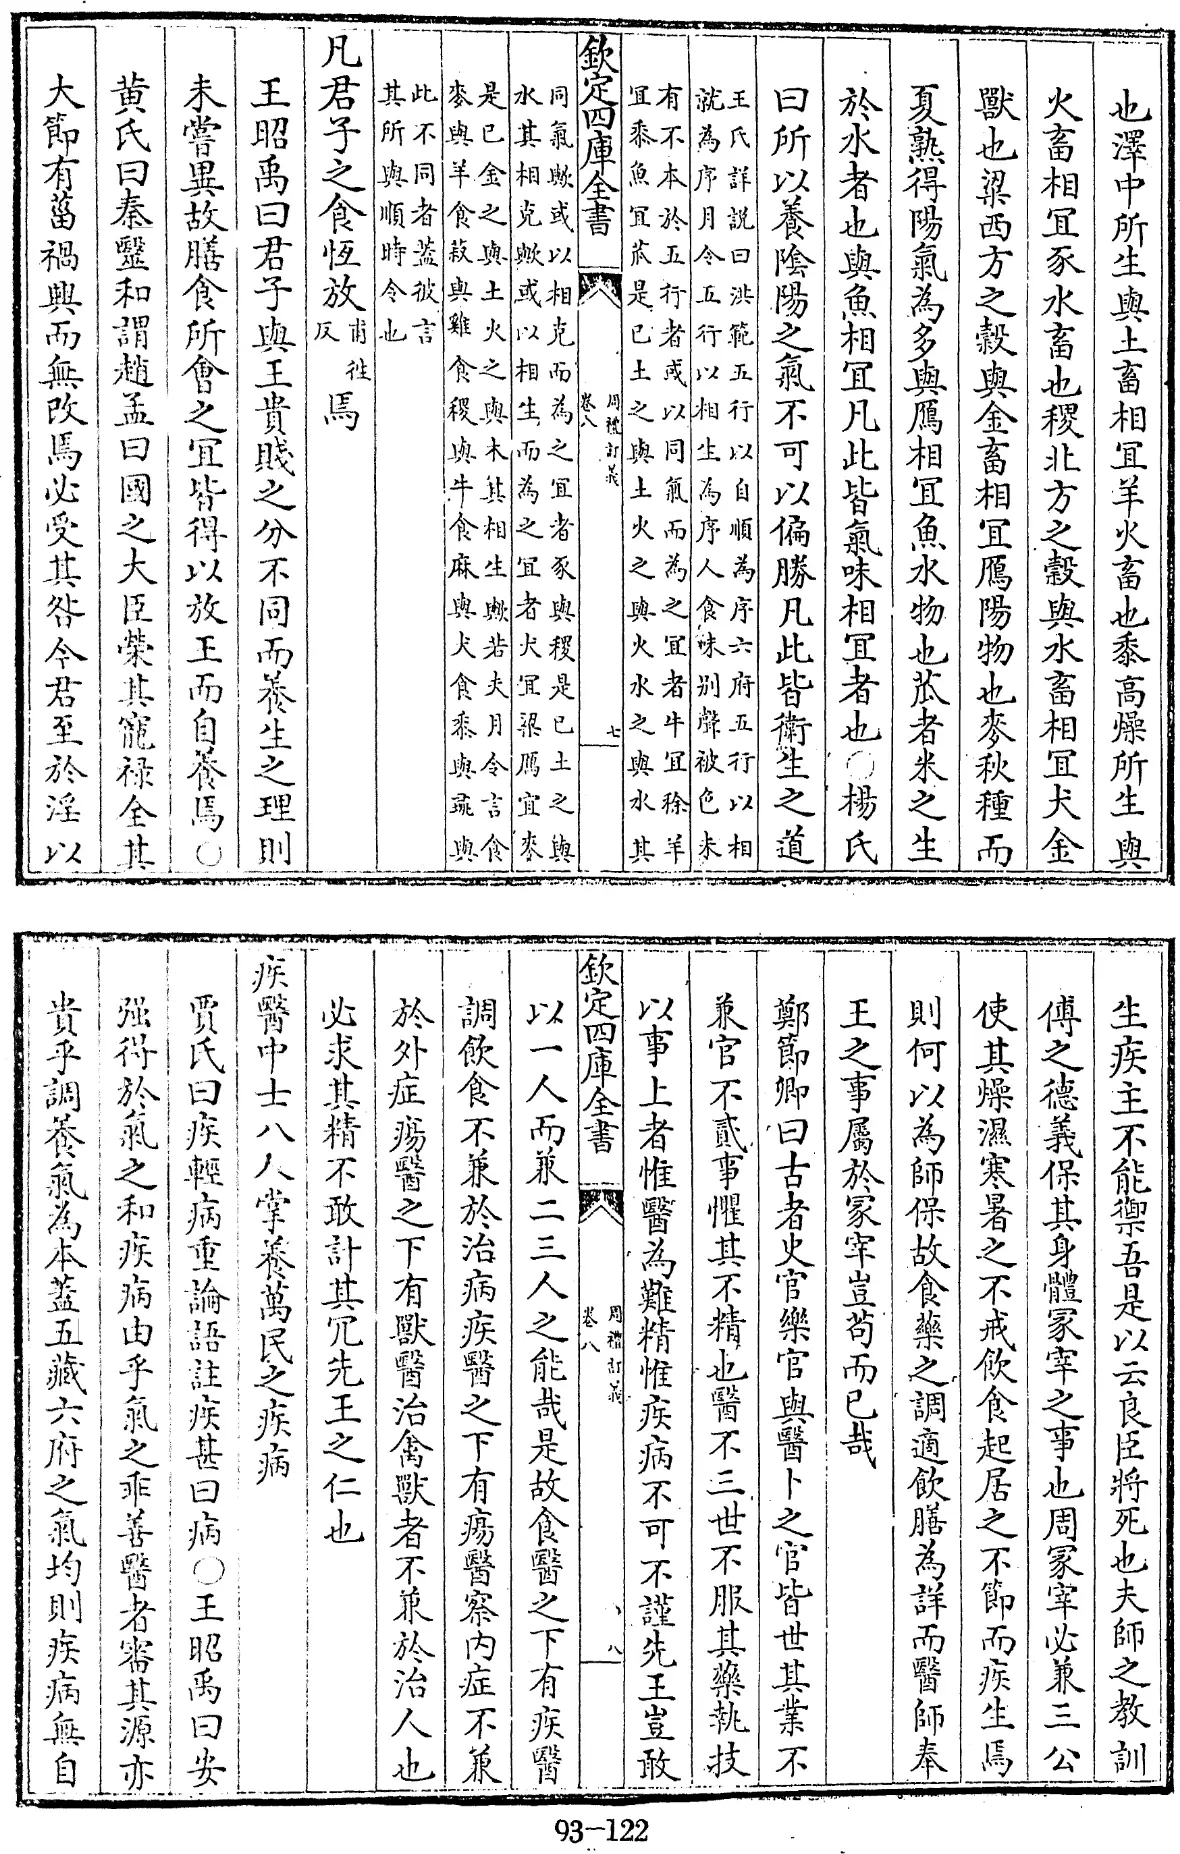 也澤中所生與土畜相冝羊火畜也黍髙燥所生與
火畜相冝豕水畜也稷北方之穀與水畜相冝犬金
獸也粱西方之穀與金畜相冝鴈陽物也麥秋種而
夏熟得陽氣為多與鴈相冝魚水物也苽者米之生
於水者也與魚相冝凡此皆氣味相冝者也○楊氏
曰所以養陰陽之氣不可以偏勝凡此皆衛生之道
王氏詳說曰洪範五行以自順為序六府五行以相
就為序月令五行以相生為序人食味别聲被色未
有不本於五行者或以同氣而為之冝者牛冝稌羊
冝黍魚冝苽是已土之與土火之與火水之與水其
欽定四庫全書
周禮訂義
卷八
七
同氣歟或以相克而為之冝者豕與稷是已土之與
水其相克歟或以相生而為之冝者犬冝粱鴈宜麥
是已金之與土火之與木其相生歟若夫月令言食
麥與羊食菽與雞食稷與牛食麻與犬食黍與彘與
此不同者蓋彼言
其所與順時令也
凡君子之食恆放甫徃反焉
王昭禹曰君子與王貴賤之分不同而養生之理則
未嘗異故膳食所㑹之冝皆得以放王而自養焉○
黄氏曰秦毉和謂趙孟曰國之大臣榮其寵禄全其
大節有菑禍興而無改焉必受其咎今君至於淫以
生疾主不能禦吾是以云良臣將死也夫師之教訓
傅之德義保其身體冡宰之事也周冡宰必兼三公
使其燥濕寒暑之不戒飲食起居之不節而疾生焉
則何以為師保故食藥之調適飲膳為詳而醫師奉
王之事屬於冡宰豈苟而已哉
鄭節卿曰古者史官樂官與醫卜之官皆世其業不
兼官不貳事懼其不精也醫不三世不服其藥執技
以事上者惟醫為難精惟疾病不可不謹先王豈敢
欽定四庫全書
周禮訂義
卷八
八
以一人而兼二三人之能哉是故食醫之下有疾醫
調飲食不兼於治病疾醫之下有瘍醫察内症不兼
於外症瘍醫之下有獸醫治禽獸者不兼於治人也
必求其精不敢計其冗先王之仁也
疾醫中士八人掌養萬民之疾病
賈氏曰疾輕病重論語註疾甚曰病○王昭禹曰安
强得於氣之和疾病由乎氣之乖善醫者審其源亦
貴乎調養氣為本蓋五藏六府之氣均則疾病無自
93-122